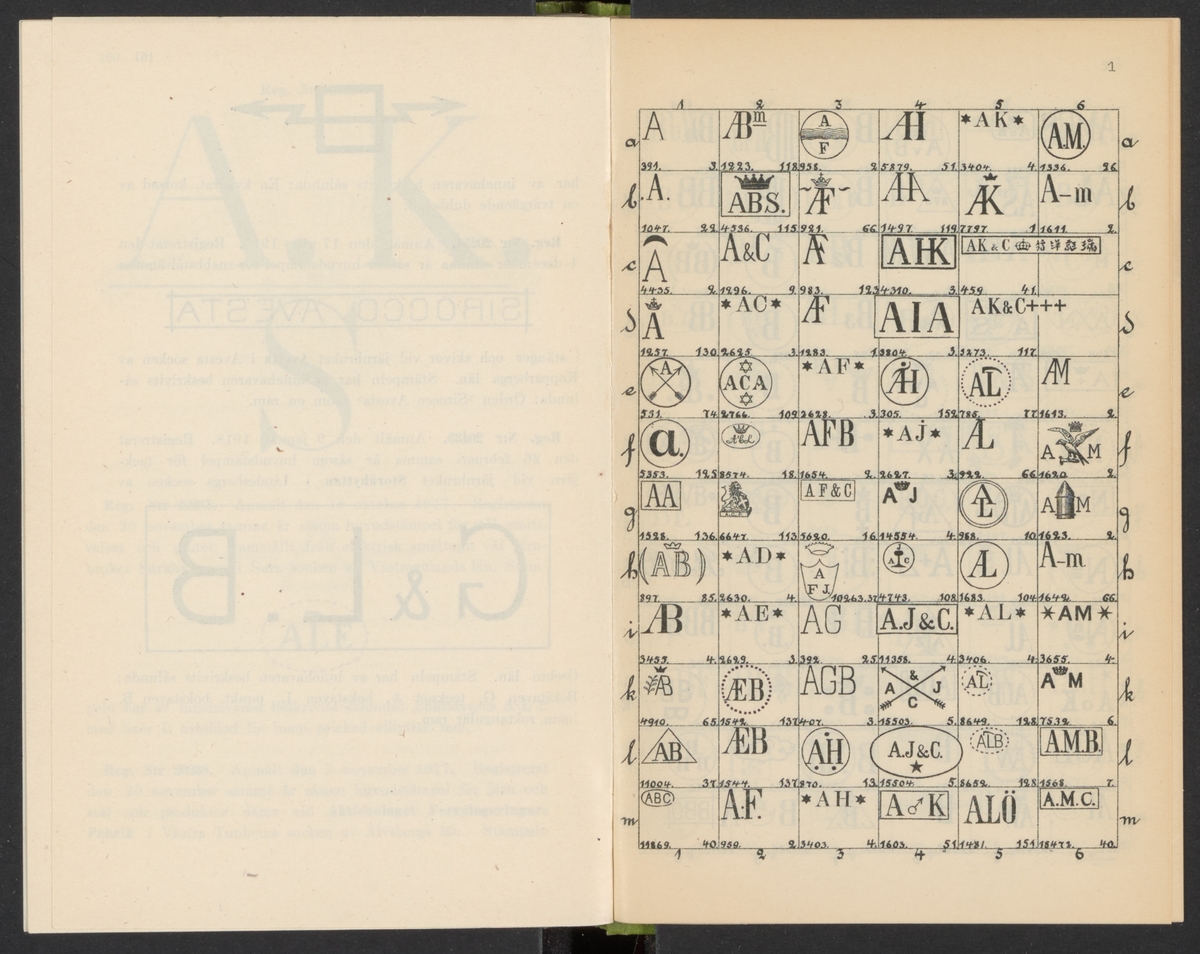 1
1 2 3 4 5 6
a A ÆBm A F ÆH *AK* A.M. a
391. 3. 1223. 118. 958. 2. 5879. 51. 3404. 4. 1336. 26.
b .A. ABS. ~Æ~F A-m
1047. 22. 4536. 115. 921. 66. 1497. 119. 7797. 1. 1611. 2.
c A A&C Æ AHK AK&C c
4435. 2. 1296. 9. 983. 123. 4310. 3. 459. 41.
d A *AC* Æ AIA AK&C+++ d
1257. 130. 2625. 3. 1283. 1. 3804. 3. 5273. 117.
e A ACA *AF* ÅH AL AM e
531. 74. 2766. 109. 2628. 3. 305. 152. 786. 77. 1613. 2.
f a. AFB *AJ* AL A M f
5353. 125. 8574. 18. 1654. 2. 2627. 3. 929. 66. 1620. 2.
g AA AF&C A J AL A M g
1528. 136. 6647. 113. 5620. 16. 14554. 4. 988. 10. 1623. 2.
h (AB) *AD* A F J. AIC AL A-m h
897. 85. 2630. 4. 10263. 37. 4743. 108. 1683. 104. 1642. 66.
i AB *AE* AG A.J&C. *AL* *AM* i
3455. 4. 2629. 3. 392. 25. 11358. 4. 3406. 4. 3655. 4.
k AB ÆB AGB A & J C AL A M k
4910. 65. 1542. 137. 407. 3. 15503. 5. 8649. 128. 7532. 6.
l AB ÆB AH A.J&C. ★ ALB A.M.B. l
11004. 37. 1544. 137. 870. 13. 15504. 5. 8652. 128. 1568. 7.
m ABC A.F. *AH* A♂K ALÖ A.M.C. m
11869. 40. 959. 2. 3403. 4. 1603. 51. 1481. 151. 15477. 40.
1 2 3 4 5 6